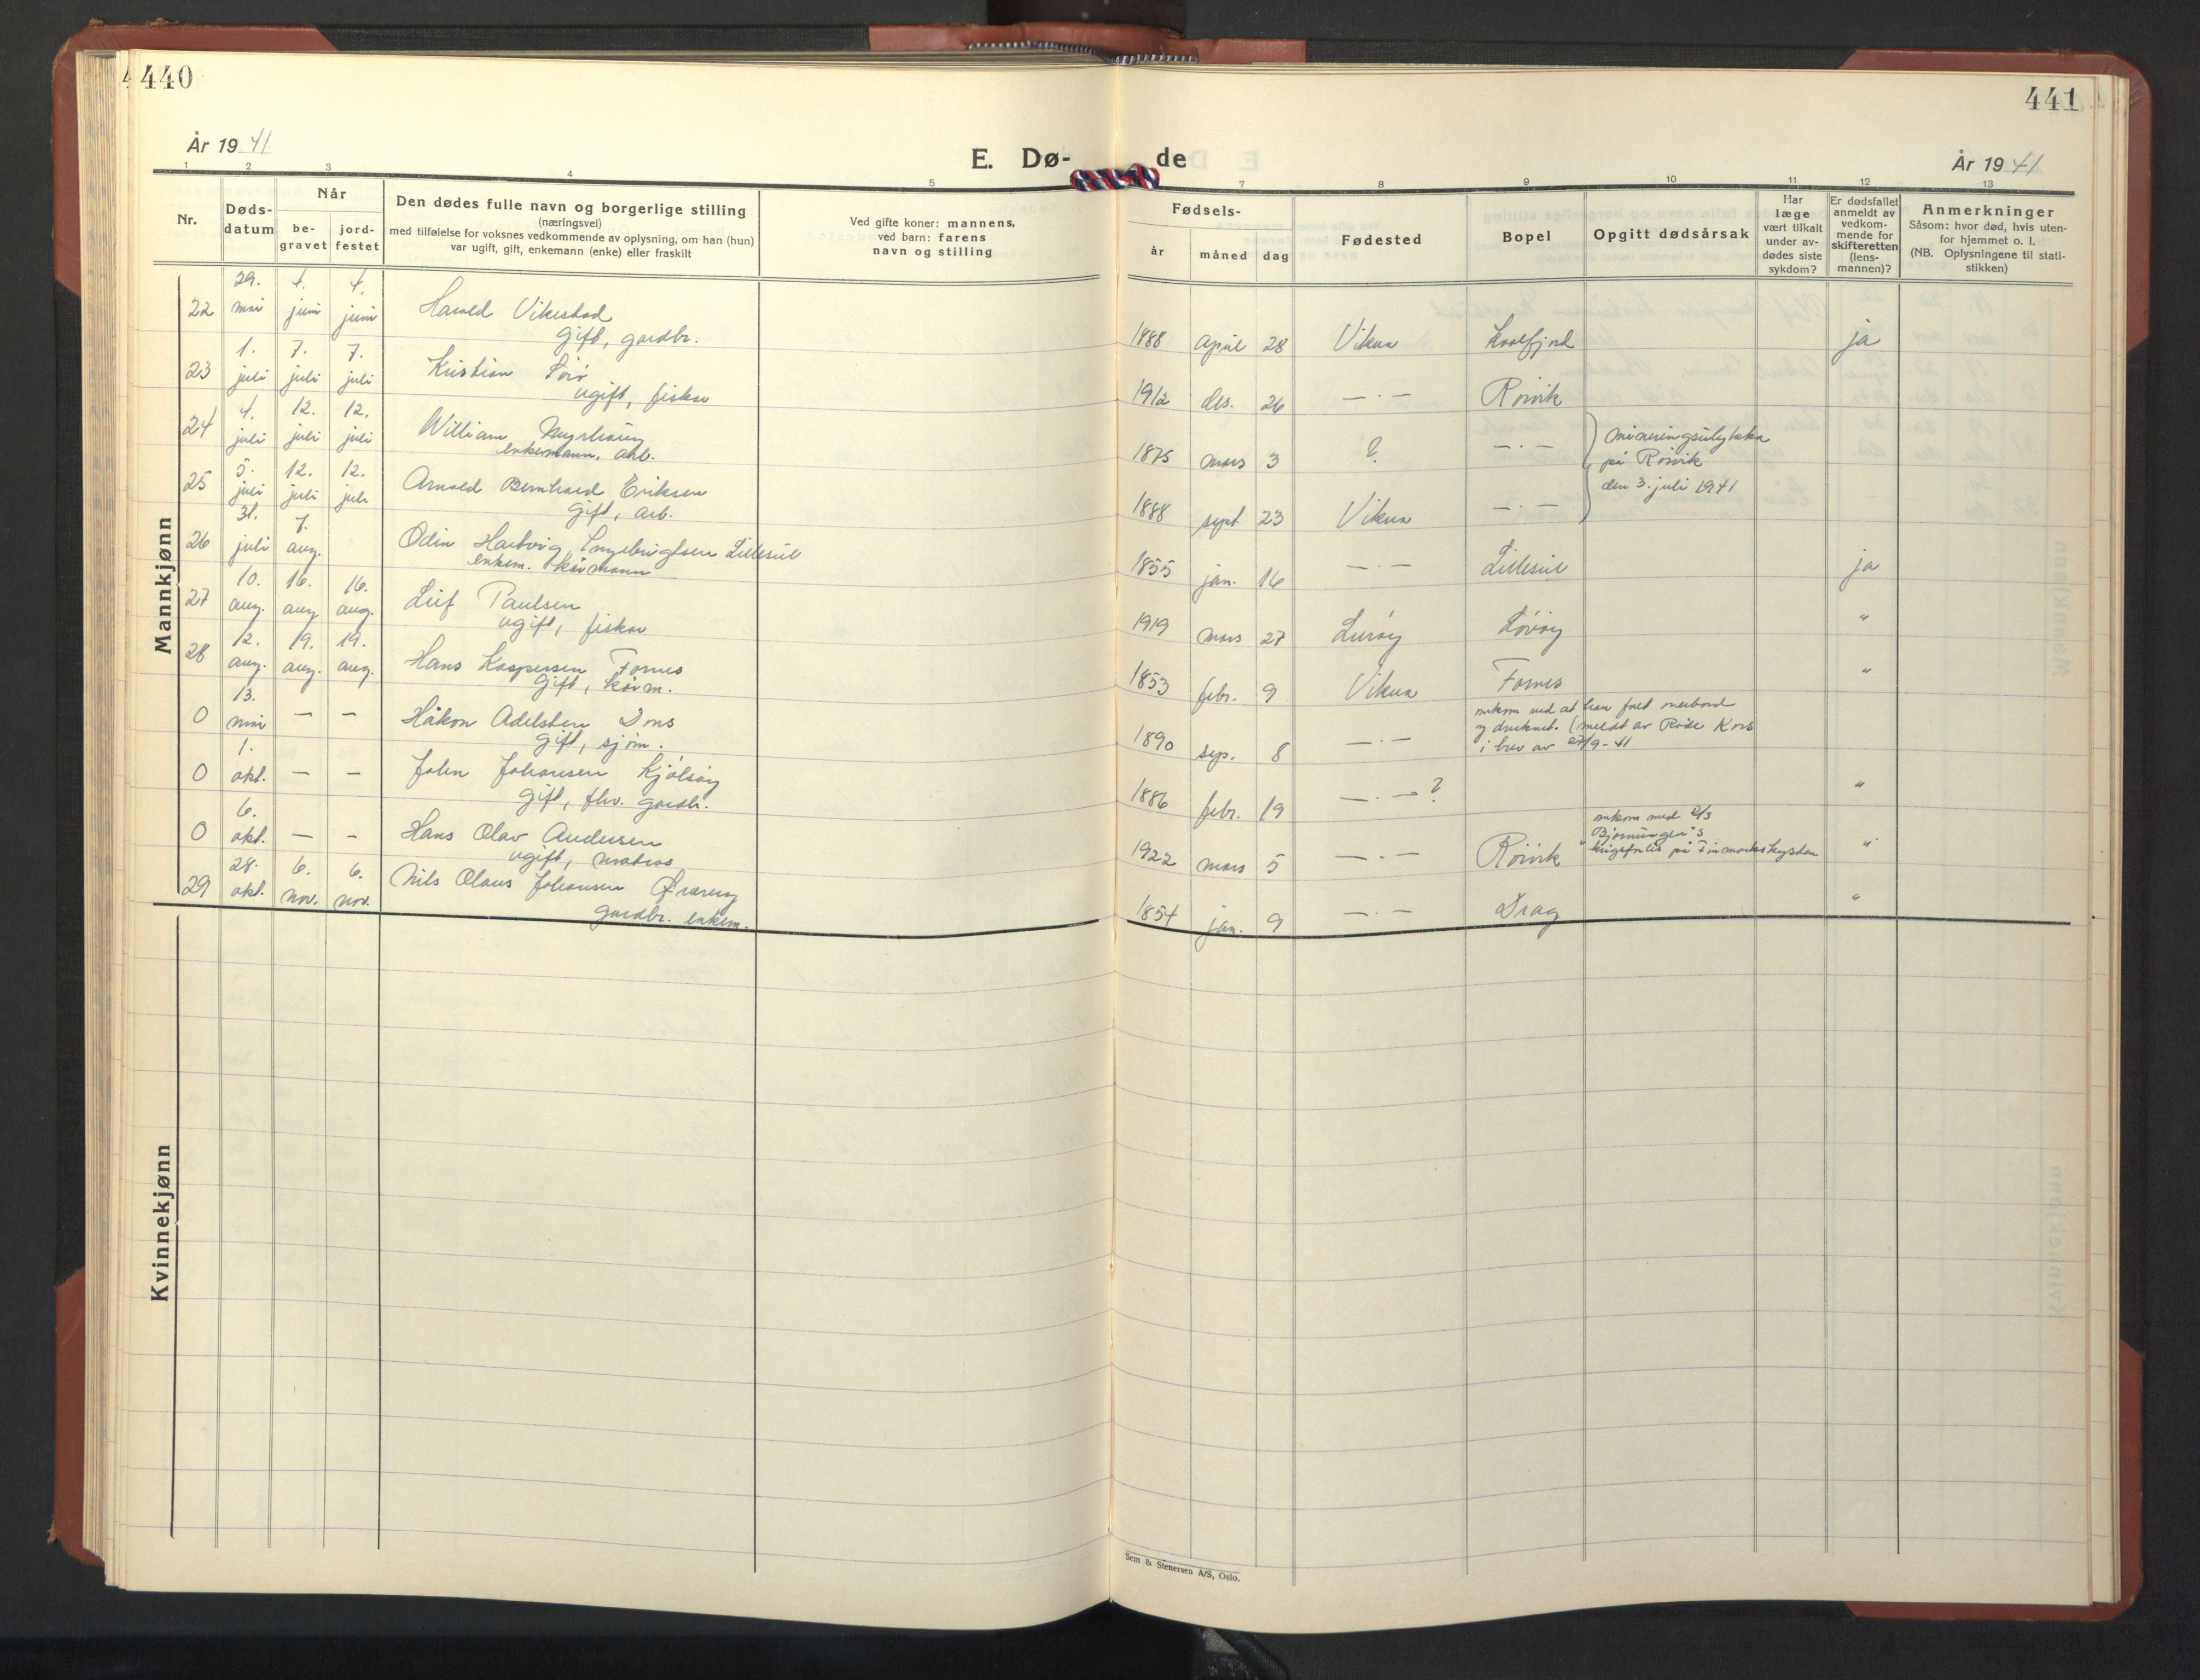 440
441
År 1941
E. Dø-
de
År 1941
1 2 3 4 5 7 8 9 10 11 12 13
Nr.
Døds-
datum
Når
be-
gravet
jord-
festet
Den dødes fulle navn og borgerlige stilling
(næringsvei)
med tilføielse for voksnes vedkommende av oplysning, om han (hun)
var ugift, gift, enkemann (enke) eller fraskilt
Ved gifte koner: mannens,
ved barn: farens
navn og stilling
Fødsels-
år måned dag
Fødested
Bopel
Opgitt dødsårsak
Har
læge
vært tilkalt
under av-
dødes siste
sykdom?
Er dødsfallet
anmeldt av
vedkom-
mende for
skifteretten
(lens-
mannen)?
Anmerkninger
Såsom: hvor død, hvis uten-
for hjemmet o. l.
(NB. Oplysningene til stati-
stikken)
Mannkjønn
22 29. mai 4. juni 4. juni Harald Vikestad
gift, gardbr.
1888 april 28 Vikna ja
23 1. juli 7. juli 7. juli Kristian
ugift, fisker
1912 des. 26 — · — Rørvik
24 4. juli 12. juli 12. juli William
enkemann, arb.
1875 mars 3 ? — · — mineringsulykke
på Rørvik
den 3. juli 1941
25 5. juli 12. juli 12. juli Arnold Bernhard Eriksen
gift, arb.
1888 sept 23 Vikna — · —
26 31. juli 7. aug. Odin Hartvig Ingebrigtsen
enkem. kårmann
1855 jan. 16 — · — ja
27 10. aug. 16. aug. 16. aug. Leif Paulsen
ugift, fisker
1919 mars 27 Lurøy "
28 12. aug. 19. aug. 19. aug. Hans Kaspersen Fornes
gift, kårm.
1853 febr. 9 Vikna Fornes "
0 13. mai — — Håkon Adelsten
gift, sjøm.
1890 sep. 8 — · —
omkom ved at han falt overbord
og druknet. (meldt av Røde Kors
i brev av 27/9-41
0 1. okt. — — John Johansen
gift, fhv. gardbr.
1886 febr. 19 — · — ? "
0 6. okt. — — Hans Olav Andersen
ugift, matros
1922 mars 5 — · — Rørvik
omkom med
krigsforlis på Finmarkskysten "
29 28. okt. 6. nov. 6. nov. Nils Olaus Johansen
gardbr. enkem.
1854 jan. 9 — · — Drag "
Kvinnekjønn
Sem & Stenersen A/S, Oslo.